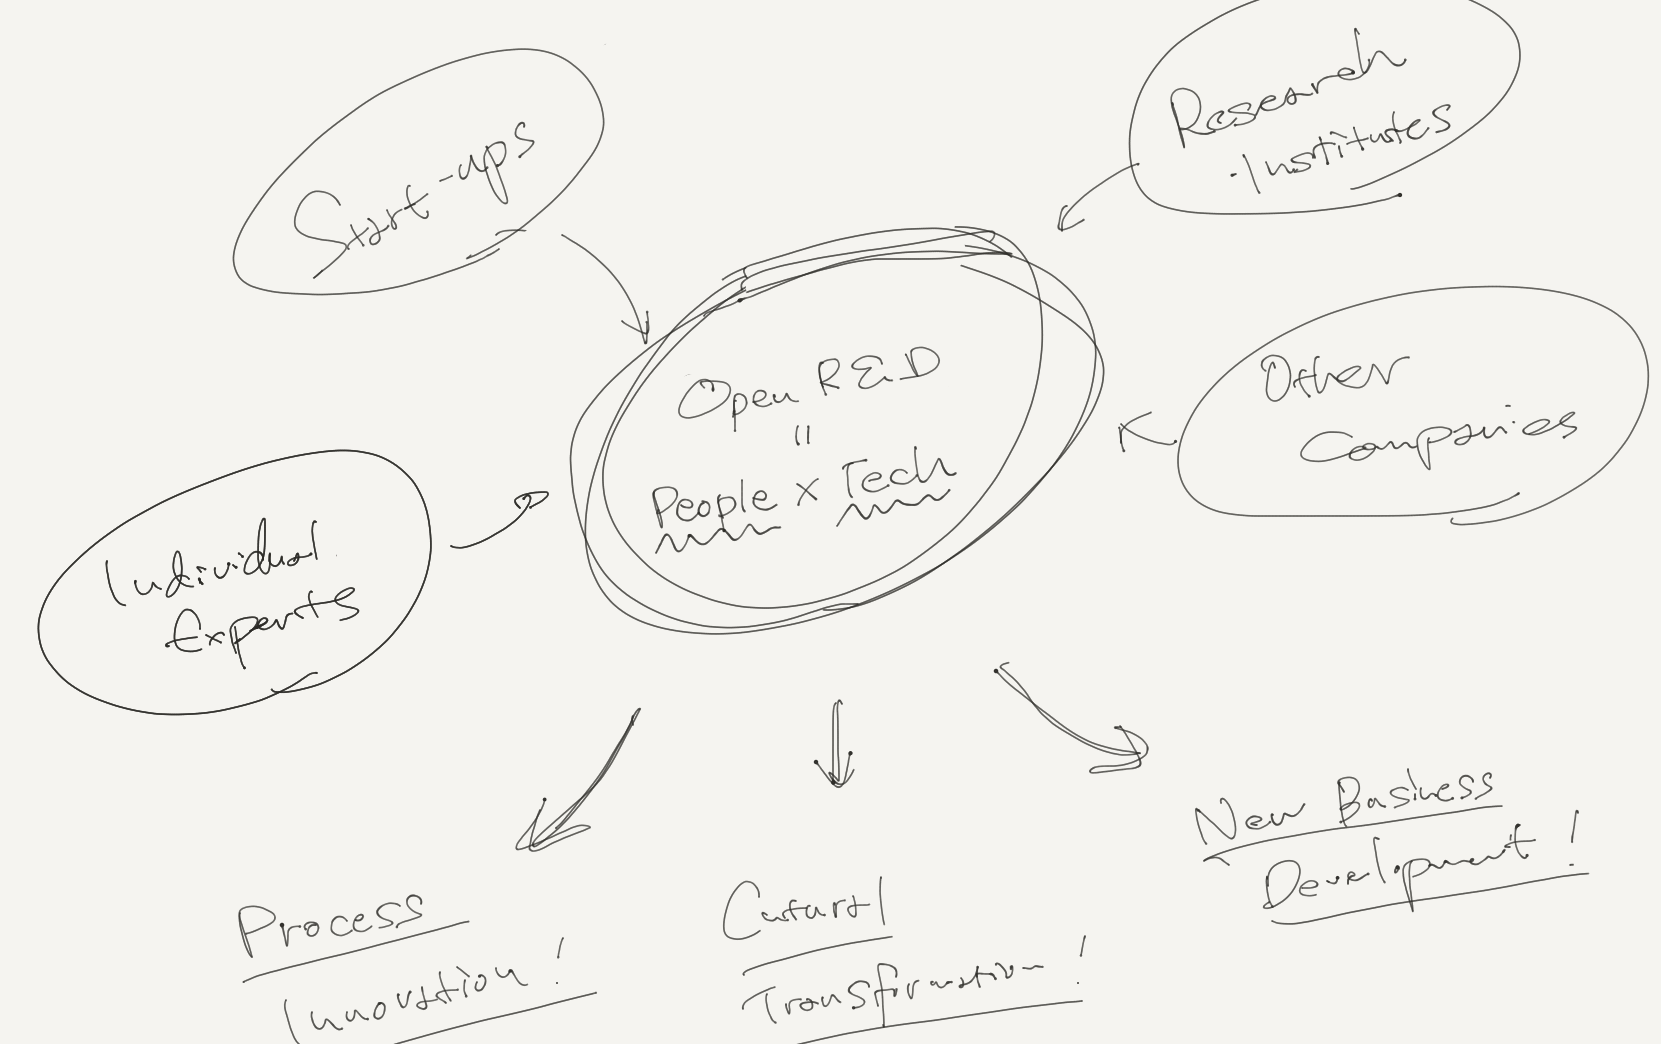 Start-ups
Research
Institutes
Open R&D
=
People x Tech
Other
Companies
Individual
Experts
Process
Innovation!
Cutural
Transformation!
New Business
Development!